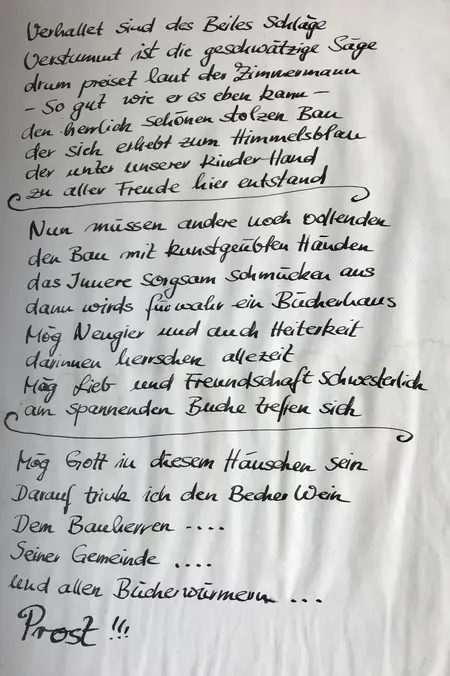 Verhallet sind des Beiles Schläge
Verstummt ist die geschwätzige Säge
drum preiset laut der Zimmermann
- So gut wie er es eben kann -
den herrlich schönen stolzen Bau
der sich erhebt zum Himmelsblau
der unter unserer Kinder-Hand
zu aller Freude hier entstand
Nun müssen andere noch vollenden
den Bau mit kunstgeübten Händen
das Innere sorgsam schmücken aus
dann wirds fürwahr ein Bücherhaus
Mög Neugier und auch Heiterkeit
darinnen herrschen allezeit
Mög Lieb und Freundschaft schwesterlich
am spannenden Buche treffen sich
Mög Gott in diesem Häuschen sein
Darauf trink ich den Becher Wein
Dem Bauherren ....
Seiner Gemeinde ....
und allen Bücherwürmern ...
Prost !!!